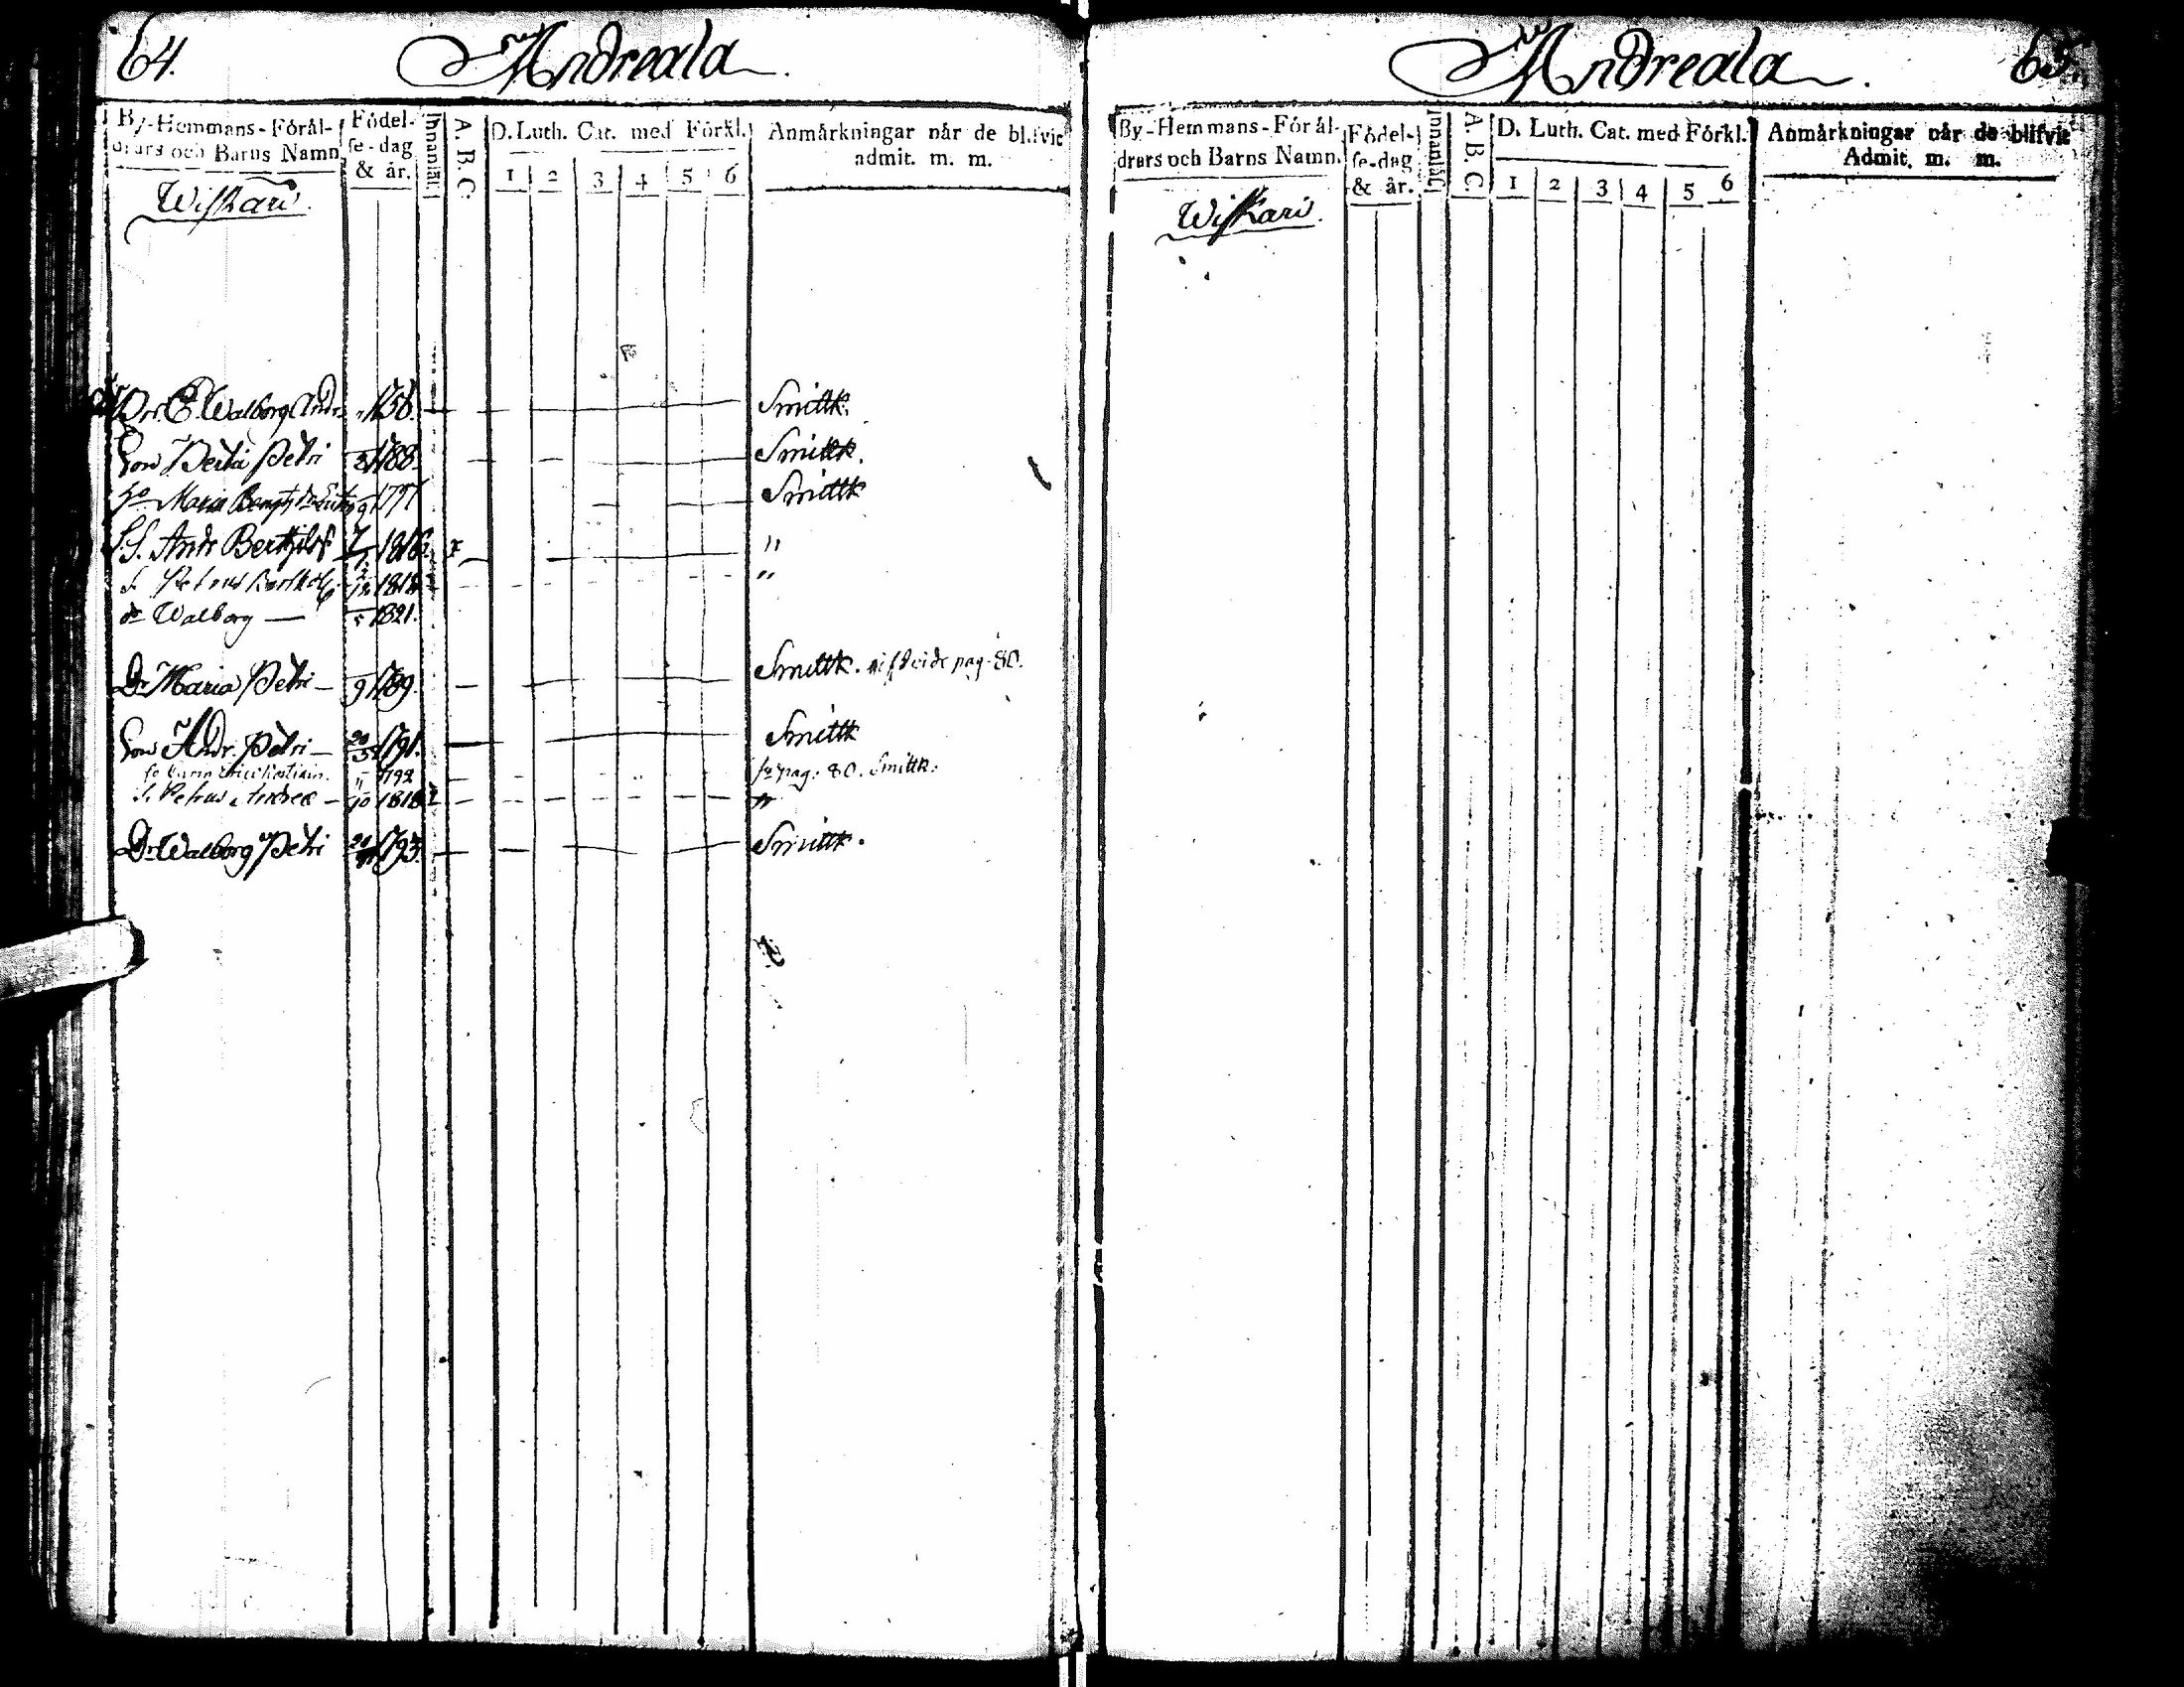 64.
Andreala.
By-Hemmans-Förål-
drars och Barns Namn.
Födel-
se-dag
& år.
Innanläs.
A. B. C.
D. Luth. Cat. med Förkl.
1 2 3 4 5 6
Anmårkningar når de blifvit
admit. m. m.
Wiskari.
E. Walborg Andr. 1756. Smittk.
Son Bertil Petri 1788. Smittk.
Maria 1797 Smittk
S. S. Andr Bertilss 1816. "
S. Petrus 1818 "
dr Walborg — 1821.
Dr Maria Petri — 9 1789. Smittk. pag. 80.
Son Andr. Petri — 1791. Smittk
1792 pag: 80. Smittk:
S. Petrus Andreæ — 1818 "
Dr Walborg Petri 1793. Smittk.
Andreala.
65.
By-Hemmans-Förål-
drars och Barns Namn.
Födel-
se-dag
& år.
Innanläs.
A. B. C.
D. Luth. Cat. med Förkl.
1 2 3 4 5 6
Anmårkningar når de blifvit
Admit. m. m.
Wiskari.